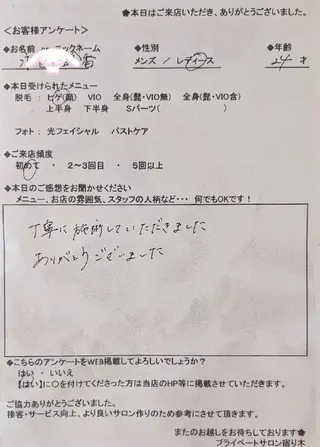 ★本日はご来店いただき、ありがとうございました。
＜お客様アンケート＞
◆お名前 or ニックネーム ◆性別 ◆年齢
メンズ / レディース 24 才
◆本日受けられたメニュー
脱毛：ヒゲ(顔) VIO 全身(髭・VIO無) 全身(髭・VIO含)
上半身 下半身 Sパーツ( )
フォト：光フェイシャル バストケア
◆ご来店頻度
初めて ・ 2～3回目 ・ 5回以上
◆本日のご感想をお聞かせください
メニュー、お店の雰囲気、スタッフの人柄など・・・何でもOKです！
丁寧に施術していただきました
ありがとうございました
◆こちらのアンケートをWEB掲載してよろしいでしょうか？
はい ・ いいえ
【はい】に○を付けてくださった方は当店のHP等に掲載させていただきます。
ご協力ありがとうございました。
接客・サービス向上、より良いサロン作りのため参考にさせて頂きます。
★またのお越しをお待ちしております★
プライベートサロン宿り木